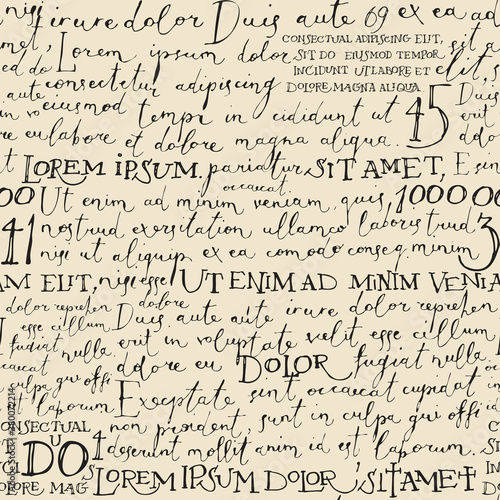 nisi irure dolor Duis aute 69 ex ea ad
met, Lorem ipsum dolor CONSECTUAL ADIPISCING ELIT, sit a
SIT DO EIUSMOD TEMPOR
INCIDUNT UT LABORE ET elit, s
DOLORE MAGNA ALIQUA
ed do consectetur adipiscing
aute eiusmod tempr in cididunt ut 45 Duis
re eu labore et dolore magna aliqua. erit
LOREM IPSUM, pariatur SIT AMET, E sin
occaecat
00 Ut enim ad minim veniam, quis, 10000
41 nostrud exersitation ullamco laboris trud 3
nisi ut aliquip ex ea comodo conseq minim
AM ELIT, nisi esse UT ENIM AD MINIM VENIA
dolor reprehen dolore
Duis aute aute irure dolor reprehen
esse cillum erit in voluptate velit esse cillum
fugiat nulla dolore eu DOLOR fugiat nulla
culpa qui offi Exceptate sint occaecat cupidat
t laborum non proident, sunt in culpa qui offi
CONSECTUAL
U
DO 4 deserunt mollit anim id est laborum.
ORE MAG LOREM IPSUM DOLOR SIT AMET